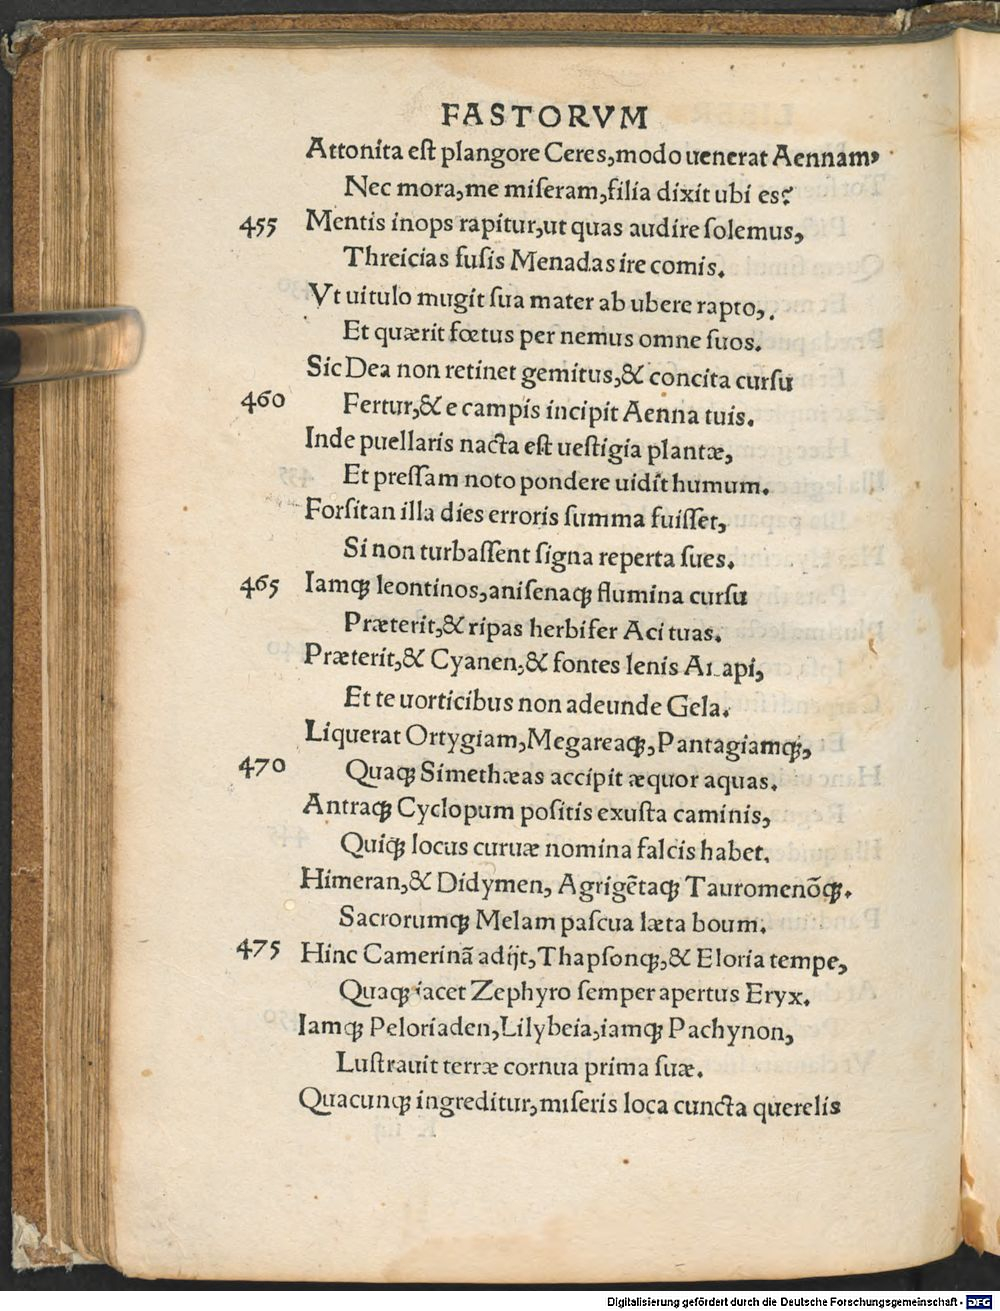 FASTORVM
Attonita eſt plangore Ceres,modo uenerat Aennam,
Nec mora,me miſeram,filia dixit ubi es?
455 Mentis inops rapitur,ut quas audire ſolemus,
Threicias fuſis Menadas ire comis.
Vt uitulo mugit ſua mater ab ubere rapto,.
Et quærit fœtus per nemus omne ſuos.
Sic Dea non retinet gemitus,& concita curſu
460 Fertur,& e campis incipit Aenna tuis.
Inde puellaris nacta eſt ueſtigia plantæ,
Et preſſam noto pondere uidit humum.
Forſitan illa dies erroris ſumma fuiſſet,
Si non turbaſſent ſigna reperta ſues.
465 Iamq; leontinos,aniſenaq; flumina curſu
Præterit,& ripas herbifer Aci tuas.
Præterit,& Cyanen,& fontes lenis Anapi,
Et te uorticibus non adeunde Gela.
Liquerat Ortygiam,Megareaq;,Pantagiamq;,
470 Quaq; Simethæas accipit æquor aquas.
Antraq; Cyclopum poſitis exuſta caminis,
Quiq; locus curuæ nomina falcis habet.
Himeran,& Didymen, Agrigẽtaq; Tauromenõq;.
Sacrorumq; Melam paſcua læta boum.
475 Hinc Camerinã adijt,Thapſonq;,& Eloria tempe,
Quaq; iacet Zephyro ſemper apertus Eryx.
Iamq; Peloriaden,Lilybeia,iamq; Pachynon,
Luſtrauit terræ cornua prima ſuæ.
Quacunq; ingreditur,miſeris loca cuncta querelis
Digitalisierung gefördert durch die Deutsche Forschungsgemeinschaft - DFG